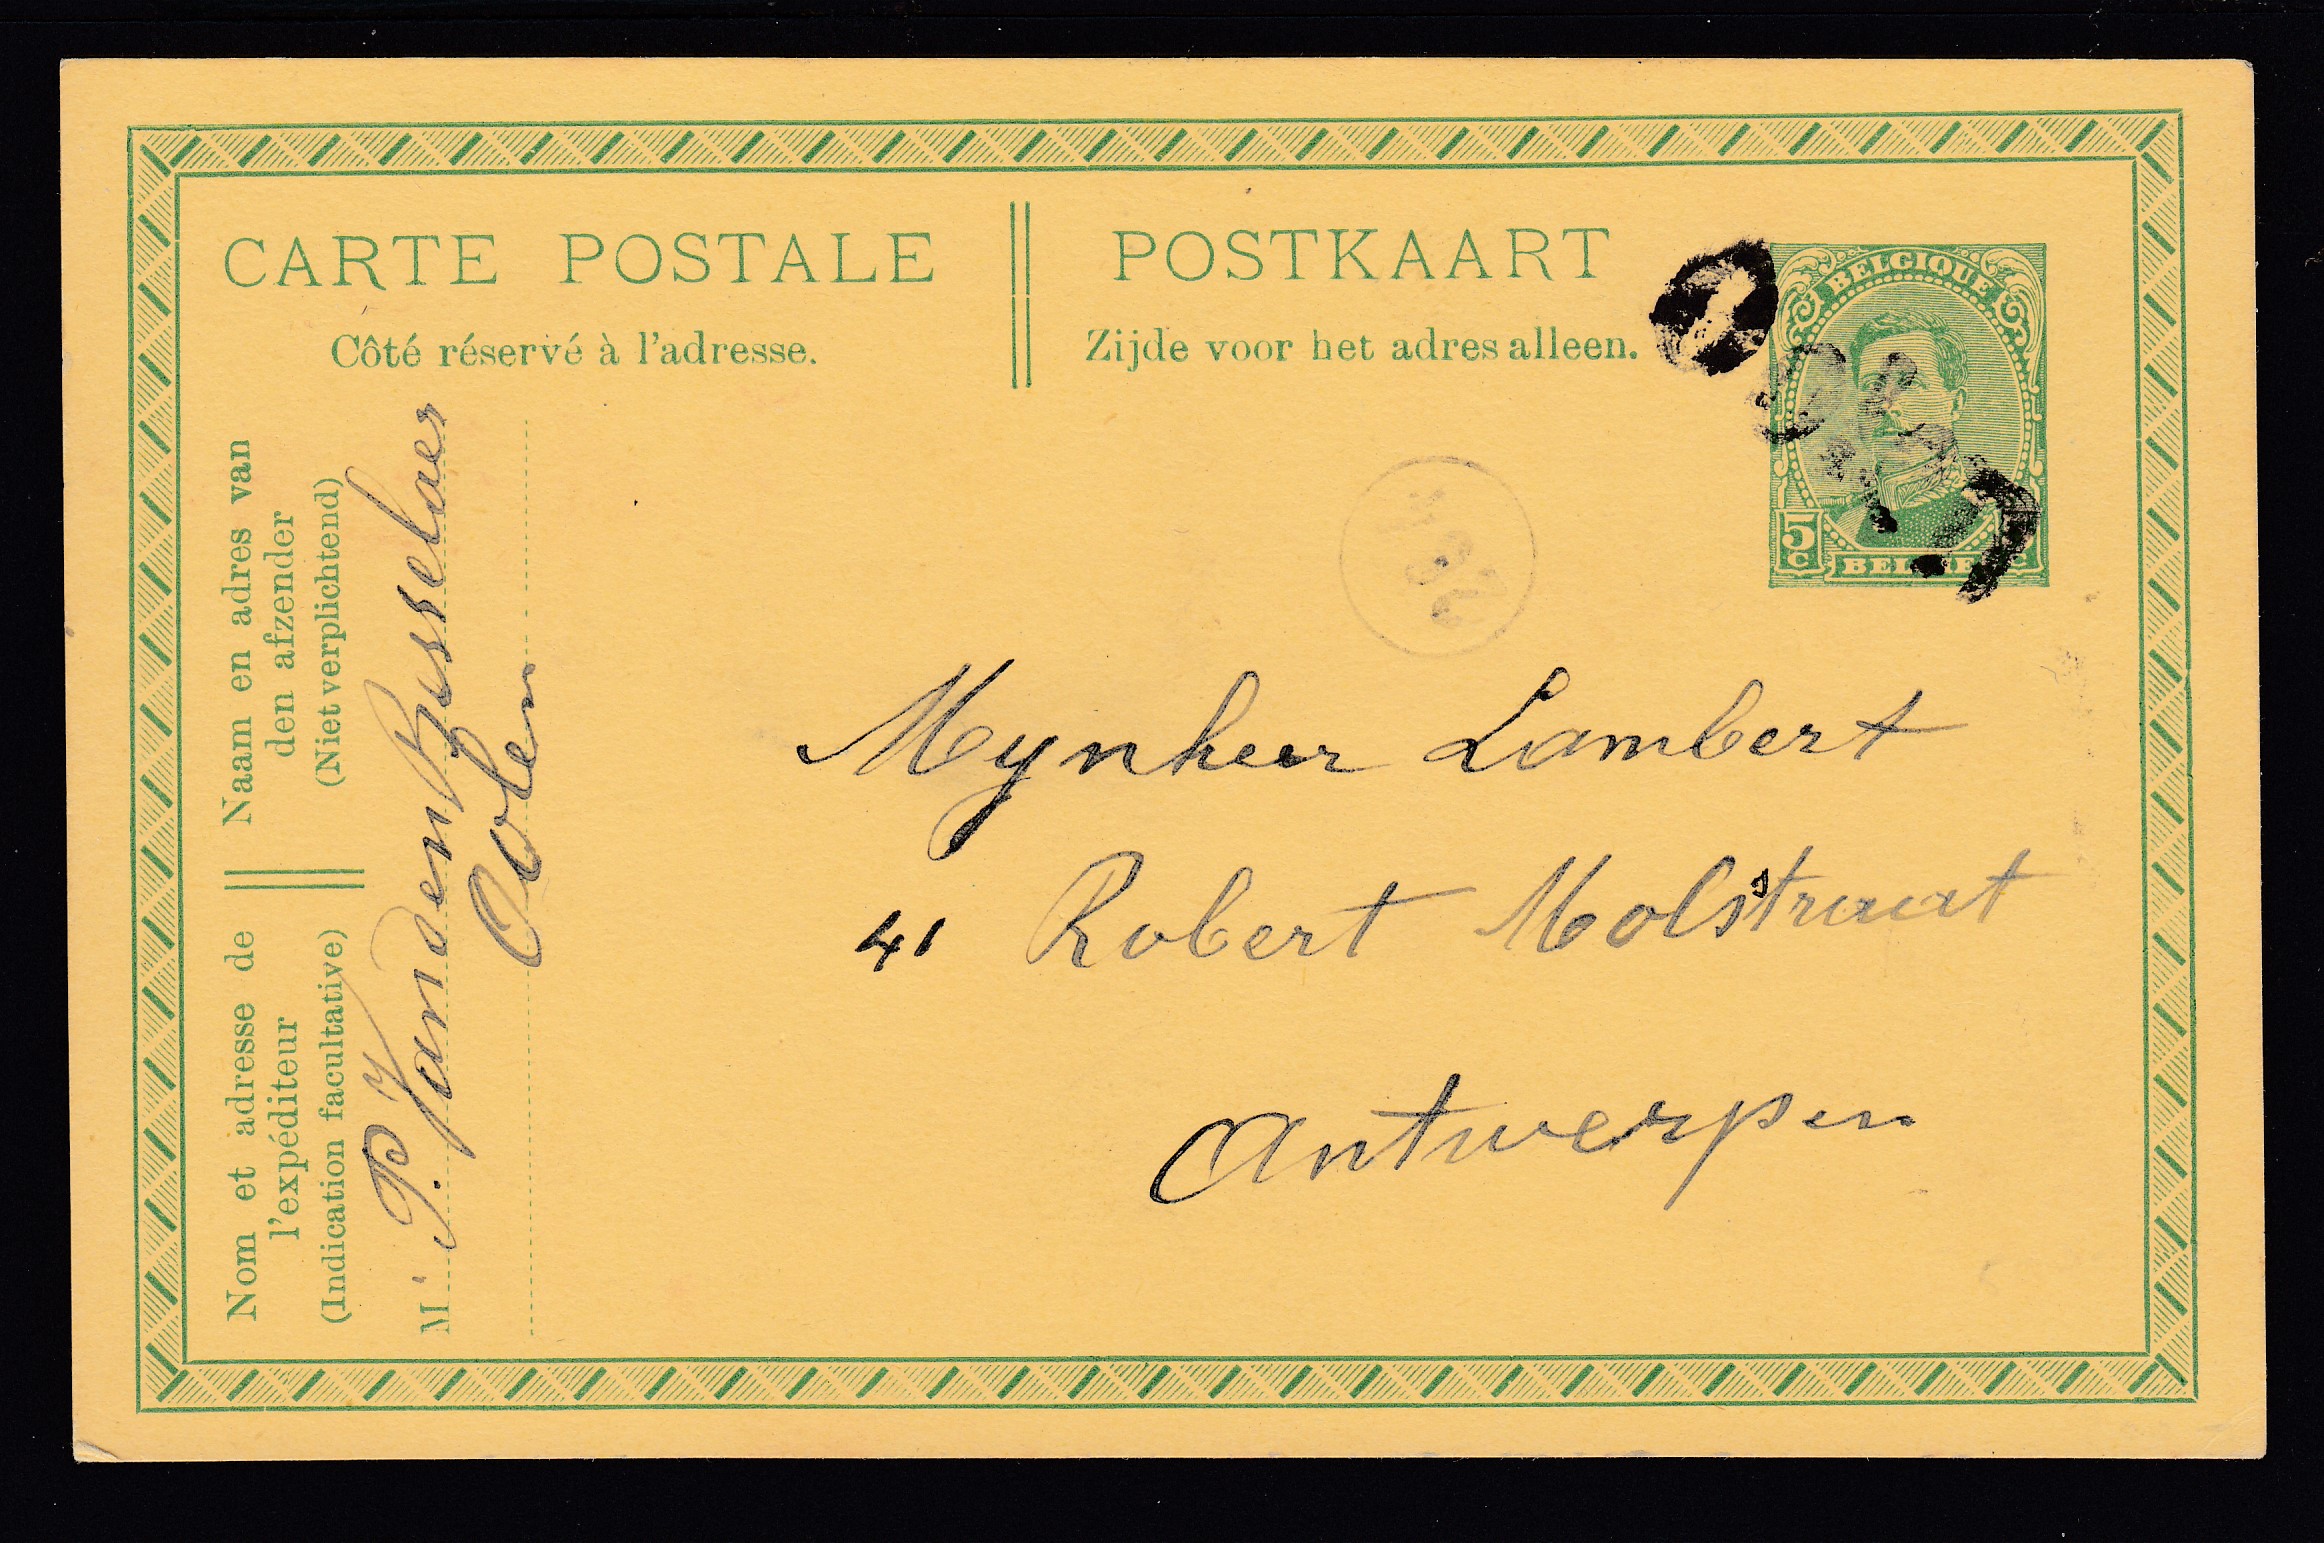 CARTE POSTALE
Côté réservé à l'adresse.
POSTKAART
Zijde voor het adres alleen.
BELGIQUE
5
C
BELGIË
C
Naam en adres van
den afzender
(Niet verplichtend)
Nom et adresse de
l'expéditeur
(Indication facultative)
M
P. Vanden Busselaer
Oolen
Mynheer Lambert
41 Robert Molsstraat
Antwerpen